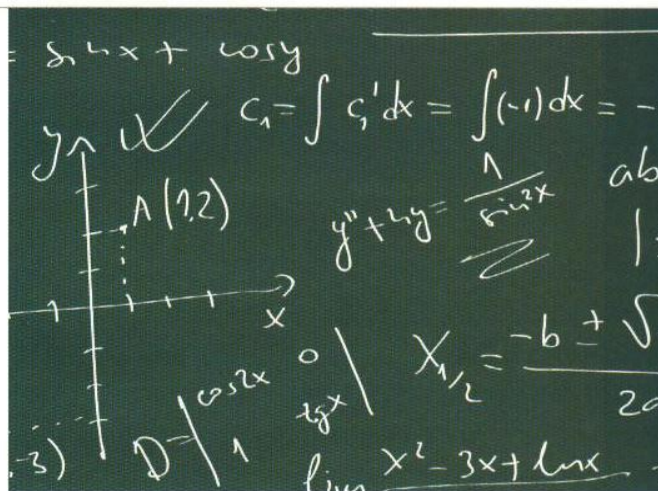 = sin x + cos y
C₁ = ∫ C₁' dx = ∫ (-1) dx = -
y
A (1,2)
y'' + 4y = 1 / sin² x
ab
x
X₁/₂ = -b ± √ / 2a
D = | cos2x 0 |
| 1 tgx |
-3)
lim x² - 3x + lnx